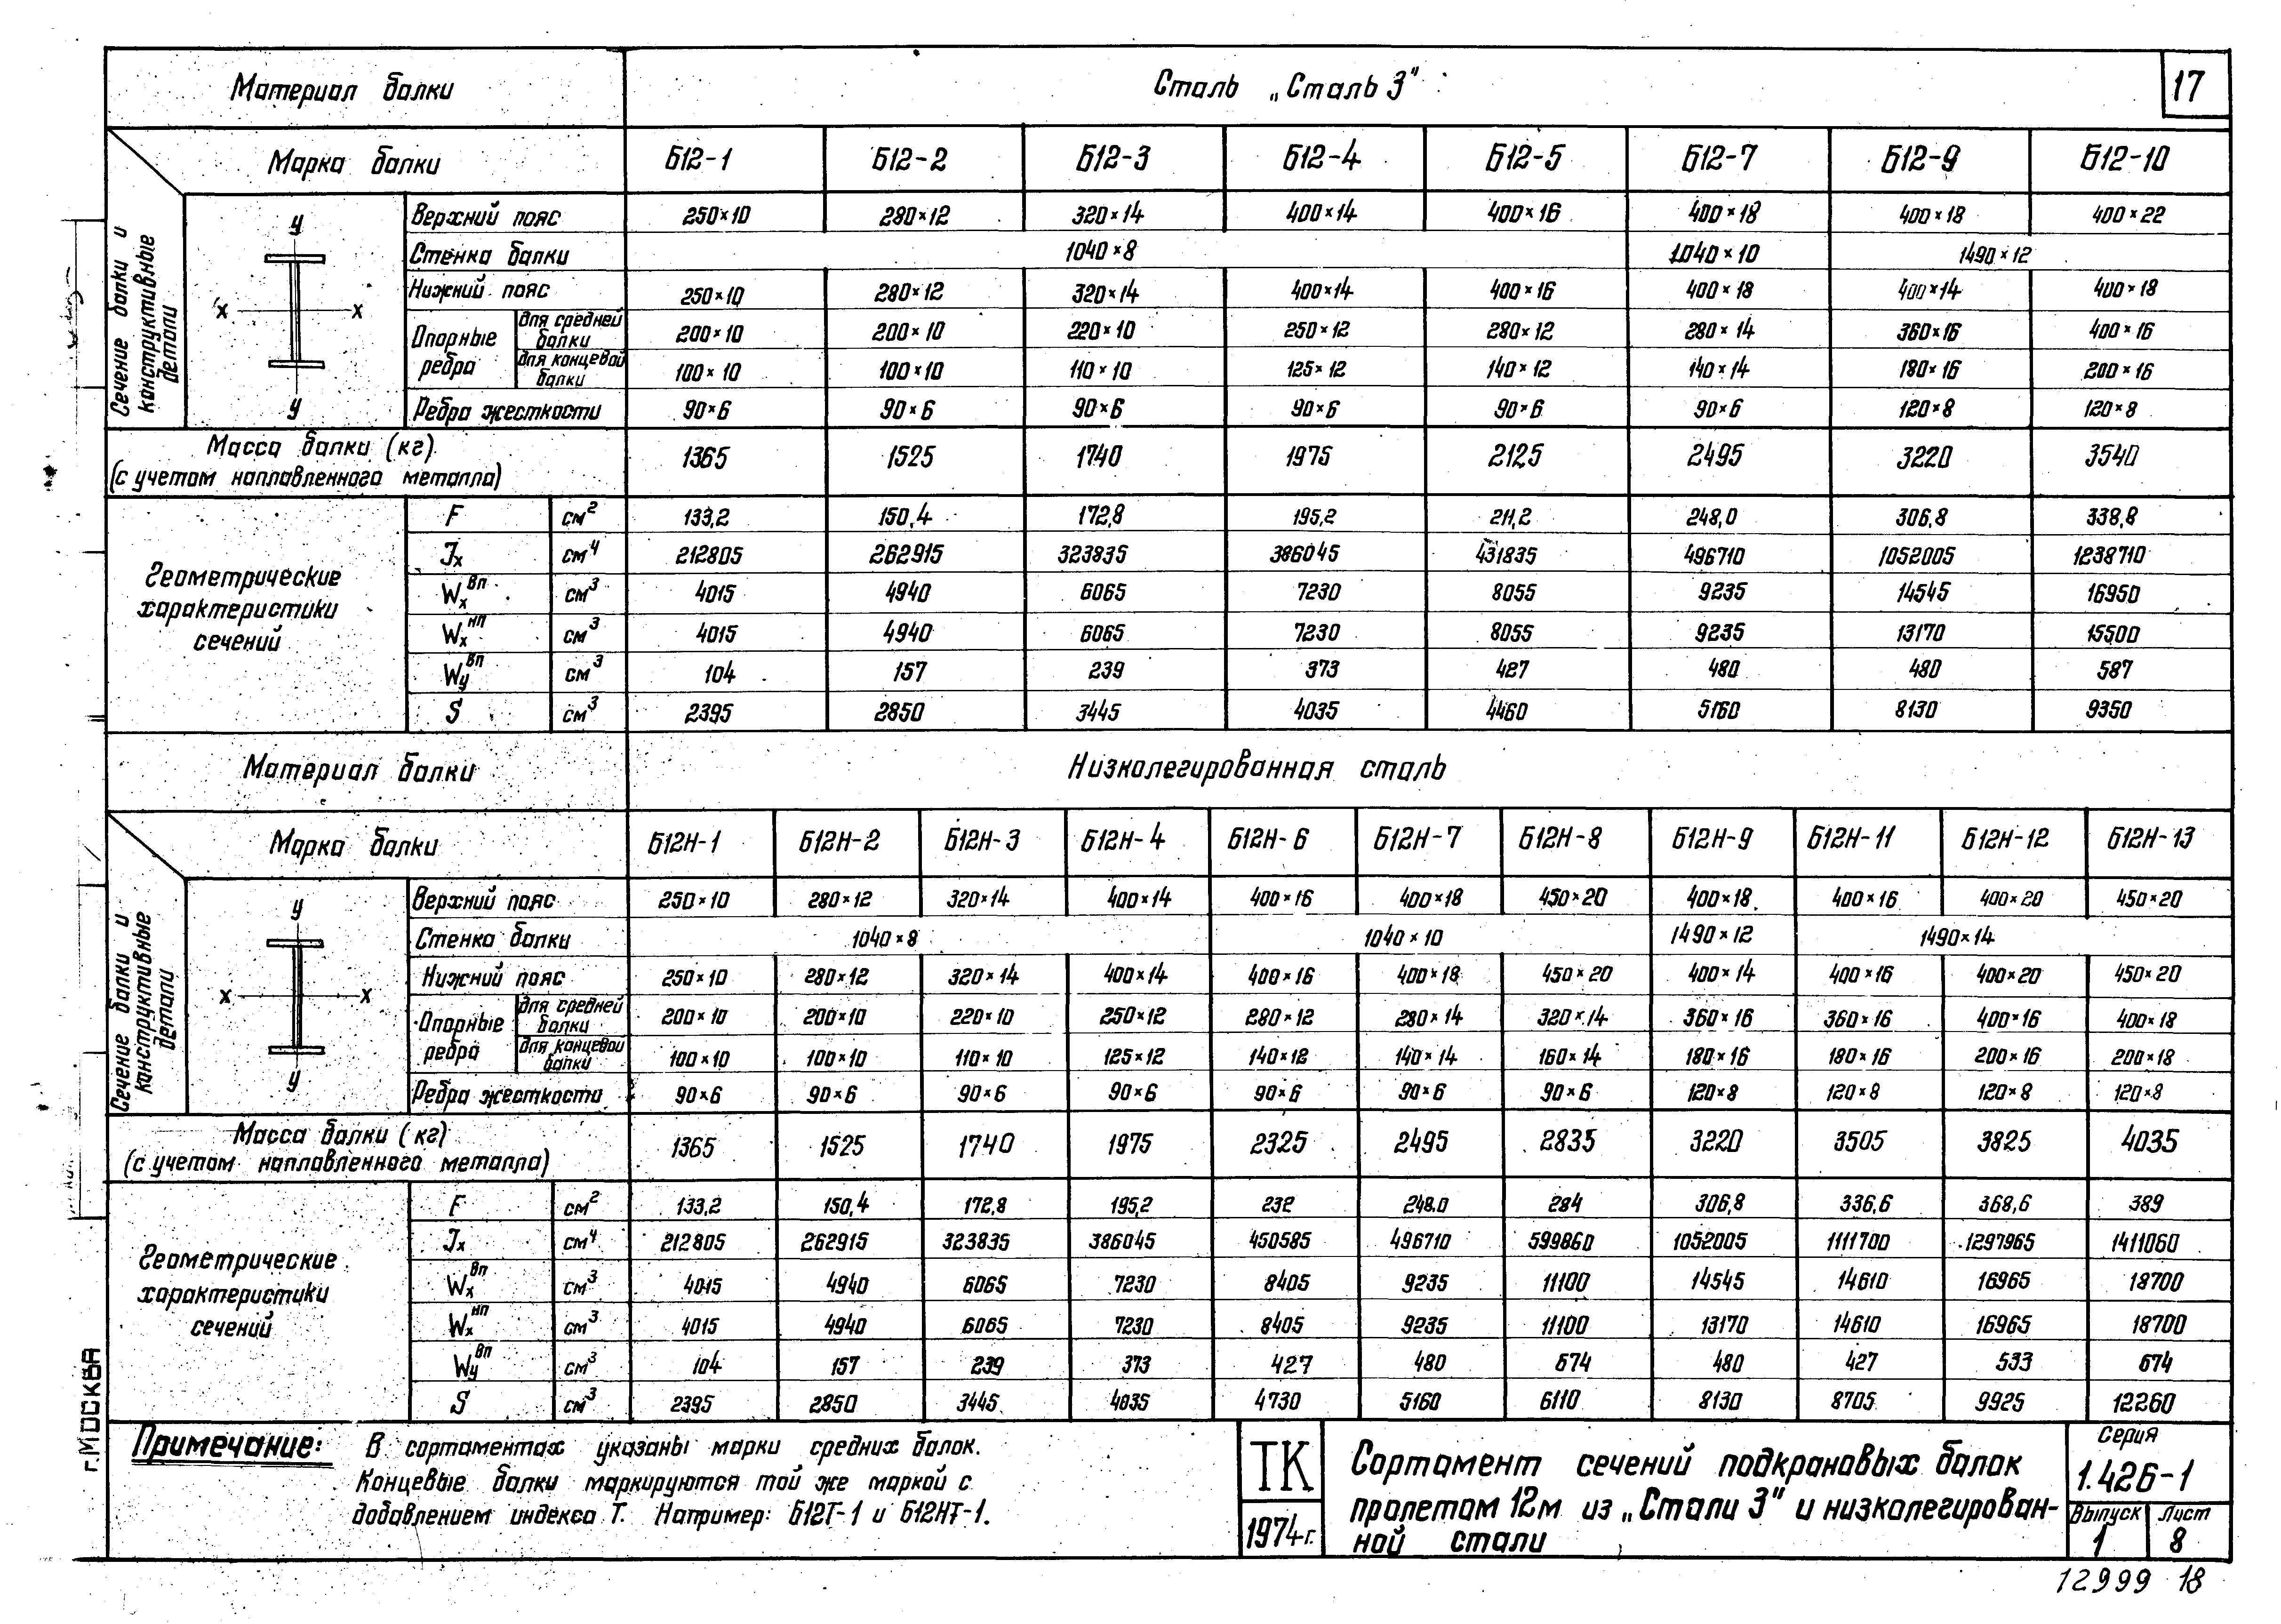 Материал балки Сталь „Сталь 3" 17
Марка балки Б12-1 Б12-2 Б12-3 Б12-4 Б12-5 Б12-7 Б12-9 Б12-10
Сечение балки и конструктивные детали
у х х у
Верхний пояс 250×10 280×12 320×14 400×14 400×16 400×18 400×18 400×22
Стенка балки 1040×8 1040×10 1490×12
Нижний пояс 250×10 280×12 320×14 400×14 400×16 400×18 400×14 400×18
Опорные ребра
для средней балки 200×10 200×10 220×10 250×12 280×12 280×14 360×16 400×16
для концевой балки 100×10 100×10 110×10 125×12 140×12 140×14 180×16 200×16
Ребра жесткости 90×6 90×6 90×6 90×6 90×6 90×6 120×8 120×8
Масса балки (кг)
(с учетом наплавленного металла) 1365 1525 1740 1975 2125 2495 3220 3540
Геометрические
характеристики
сечений
F см² 133,2 150,4 172,8 195,2 211,2 248,0 306,8 338,8
Jx см⁴ 212805 262915 323835 386045 431835 496710 1052005 1238710
Wx вп см³ 4015 4940 6065 7230 8055 9235 14545 16950
Wx нп см³ 4015 4940 6065 7230 8055 9235 13170 15500
Wу вп см³ 104 157 239 373 427 480 480 587
S см³ 2395 2850 3445 4035 4460 5160 8130 9350
Материал балки Низколегированная сталь
Марка балки Б12Н-1 Б12Н-2 Б12Н-3 Б12Н-4 Б12Н-6 Б12Н-7 Б12Н-8 Б12Н-9 Б12Н-11 Б12Н-12 Б12Н-13
Сечение балки и конструктивные детали
у х х у
Верхний пояс 250×10 280×12 320×14 400×14 400×16 400×18 450×20 400×18 400×16 400×20 450×20
Стенка балки 1040×8 1040×10 1490×12 1490×14
Нижний пояс 250×10 280×12 320×14 400×14 400×16 400×18 450×20 400×14 400×16 400×20 450×20
Опорные ребра
для средней балки 200×10 200×10 220×10 250×12 280×12 280×14 320×14 360×16 360×16 400×16 400×18
для концевой балки 100×10 100×10 110×10 125×12 140×12 140×14 160×14 180×16 180×16 200×16 200×18
Ребра жесткости 90×6 90×6 90×6 90×6 90×6 90×6 90×6 120×8 120×8 120×8 120×8
Масса балки (кг)
(с учетом наплавленного металла) 1365 1525 1740 1975 2325 2495 2835 3220 3505 3825 4035
Геометрические
характеристики
сечений
F см² 133,2 150,4 172,8 195,2 232 248.0 284 306,8 336,6 368,6 389
Jx см⁴ 212805 262915 323835 386045 450585 496710 599860 1052005 1111700 1297965 1411060
Wx вп см³ 4015 4940 6065 7230 8405 9235 11100 14545 14610 16965 18700
Wx нп см³ 4015 4940 6065 7230 8405 9235 11100 13170 14610 16965 18700
Wу вп см³ 104 157 239 373 427 480 674 480 427 533 674
S см³ 2395 2850 3445 4035 4730 5160 6110 8130 8705 9925 12260
г. МОСКВА
Примечание: В сортаментах указаны марки средних балок.
Концевые балки маркируются той же маркой с
добавлением индекса Т. Например: Б12Т-1 и Б12НТ-1.
ТК
1974г.
Сортамент сечений подкрановых балок
пролетом 12м из „Стали 3" и низколегирован-
ной стали
Серия
1.426-1
Выпуск 1
Лист 8
12999 18